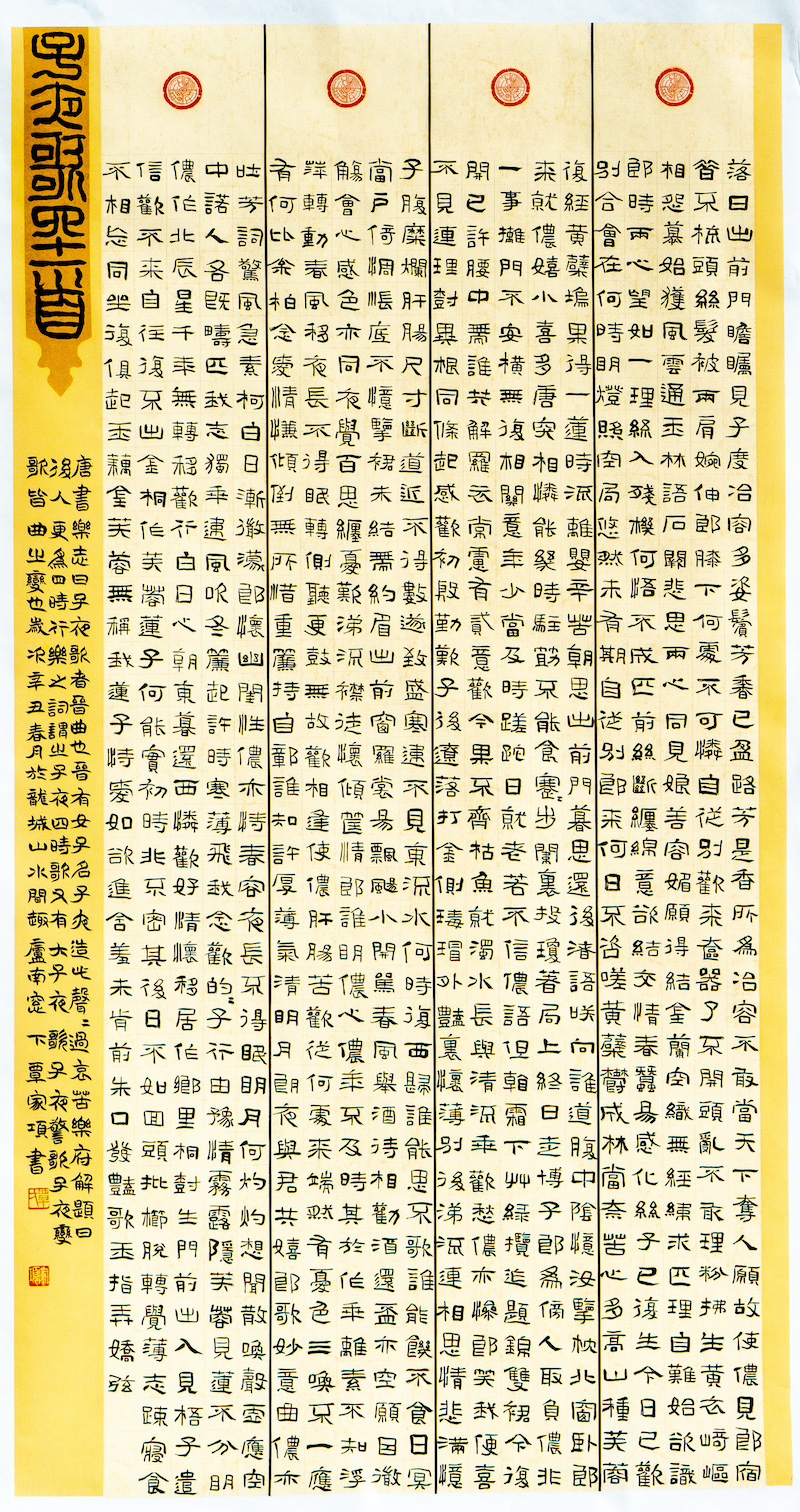 落日出前門瞻矚見子度冶容多姿鬢芳香已盈路芳是香所為冶容不敢當天下奪人願故使儂見郎宿
昔不梳頭絲髮被兩肩婉伸郎膝下何處不可憐自從別歡來奩器了不開頭亂不敢理粉拂生黃衣崎嶇
相怨慕始獲風雲通玉林語石闕悲思兩心同見娘善容媚願得結金蘭空織無經練求匹理自難始欲識
郎時兩心望如一理絲入殘機何悟不成匹前絲斷纏綿意欲結交情春蠶易感化絲子已復生今日已歡
別合會在何時明燈照空局悠然未有期自從別郎來何日不咨嗟黃蘗鬱成林當奈苦心多高山種芙蓉
復經黃蘗塢果得一蓮時流離嬰辛苦朝思出前門暮思還後渚語咲向誰道腹中陰憶汝擥枕北窗臥郎
來就儂嬉小喜多唐突相憐能幾時駐筯不能食蹇〻步闈裏投瓊著局上終日走博子郎為傍人取負儂非
一事攡門不安橫無復相關意年少當及時蹉跎日就老若不信儂語但看霜下艸綠攬迮題錦雙裙今復
開已許腰中帶誰共解羅衣常慮有貳意歡今果不齊枯魚就濁水長與清流乖歡愁儂亦慘郎笑我便喜
不見連理樹異根同條起感歡初殷勤歎子後遼落打金側瑇瑁外豔裏懷薄別後涕流連相思情悲滿憶
子腹糜爛肝腸尺寸斷道近不得數遂致盛寒違不見東流水何時復西歸誰能思不歌誰能飢不食日冥
當戶倚惆悵底不憶擥裙未結帶約眉出前窗羅裳易飄颺小開罵春風舉酒待相勸酒還盃亦空願因微
觴會心感色亦同夜覺百思纏憂歎涕流襟徒懷傾筐情郎誰明儂心儂年不及時其於作乖離素不知浮
萍轉動春風移夜長不得眠轉側聽更鼓無故歡相逢使儂肝腸苦歡從何處來端然有憂色三喚不一應
有何比松柏念愛情慊傾倒無所惜重簾持自鄣誰知許厚薄氣清明月朗夜與君共嬉郎歌妙意曲儂亦
吐芳詞驚風急素柯白日漸微濛郎懷幽閨性儂亦恃春容夜長不得眠明月何灼灼想聞散喚聲虛應空
中諾人各既疇匹我志獨乖違風吹冬簾起許時寒薄飛我念歡的〻子行由豫情霧露隱芙蓉見蓮不分明
儂作北辰星千年無轉移歡行白日心朝東暮還西憐歡好情懷移居作鄉里桐樹生門前出入見梧子遣
信歡不來自往復不出金桐作芙蓉蓮子何能實初時非不密其後日不如回頭批櫛脫轉覺薄志疎寢食
不相忘同坐復俱起玉藕金芙蓉無稱我蓮子恃愛如欲進含羞未肯前朱口發豔歌玉指弄嬌弦
子夜歌四十二首
唐書樂志曰子夜歌者晉曲也晉有女子名子夜造此聲〻過哀苦樂府解題曰
後人更為四時行樂之詞謂之子夜四時歌又有大子夜歌子夜警歌子夜變
歌皆曲之變也歲次辛丑春月於龍城山水間趣廬南窗下覃家項書